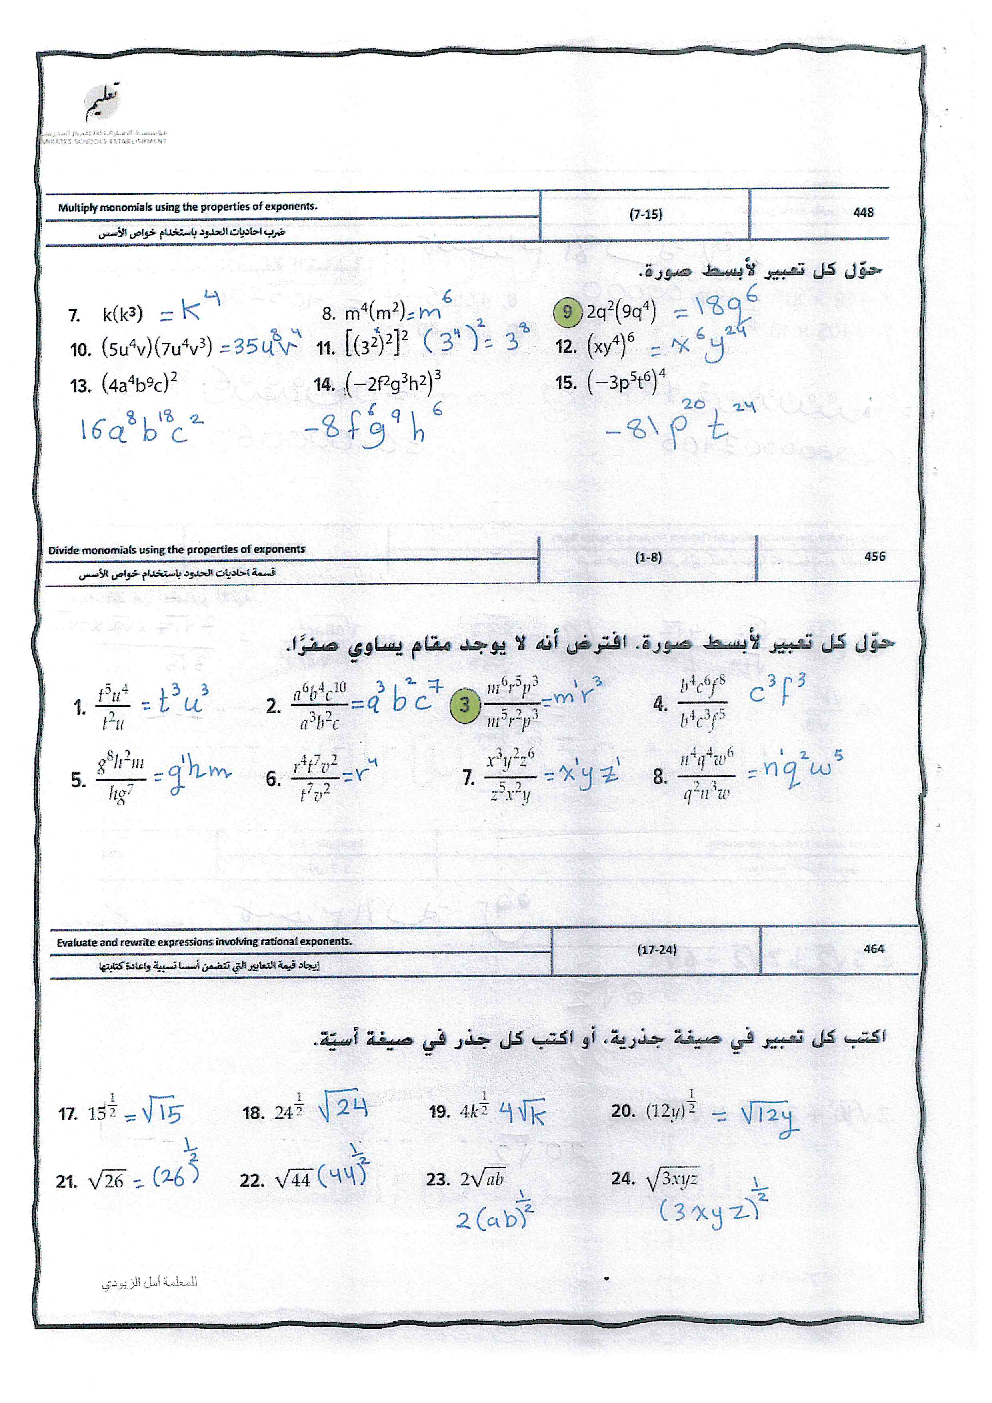 تعليم
مؤسسة الإمارات للتعليم المدرسي
EMIRATES SCHOOLS ESTABLISHMENT
Multiply monomials using the properties of exponents. (7-15) 448
ضرب احاديات الحدود باستخدام خواص الأسس
حوّل كل تعبير لأبسط صورة.
7. k(k³) = k⁴ 8. m⁴(m²) = m⁶ 9 2q²(9q⁴) = 18q⁶
10. (5u⁴v)(7u⁴v³) = 35u⁸v⁴ 11. [(3²)²]² (3⁴)² = 3⁸ 12. (xy⁴)⁶ = x⁶y²⁴
13. (4a⁴b⁹c)² 14. (−2f²g³h²)³ 15. (−3p⁵t⁶)⁴
16a⁸b¹⁸c² -8f⁶g⁹h⁶ -81p²⁰t²⁴
Divide monomials using the properties of exponents (1-8) 456
قسمة أحاديات الحدود باستخدام خواص الأسس
حوّل كل تعبير لأبسط صورة. افترض أنه لا يوجد مقام يساوي صفرًا.
1. t⁵u⁴/t²u = t³u³ 2. a⁶b⁴c¹⁰/a³b²c = a³b²c⁷ 3 m⁶r⁵p³/m⁵r²p³ = m¹r³ 4. b⁴c⁶f⁸/b⁴c³f⁵ c³f³
5. g⁸h²m/hg⁷ = g¹hm 6. r⁴t⁷v²/t⁷v² = r⁴ 7. x³y²z⁶/z⁵x²y = x¹yz¹ 8. n⁴q⁴w⁶/q²n³w = n¹q²w⁵
Evaluate and rewrite expressions involving rational exponents. (17-24) 464
إيجاد قيمة التعابير التي تتضمن أسسا نسبية وإعادة كتابتها
اكتب كل تعبير في صيغة جذرية، أو اكتب كل جذر في صيغة أسيّة.
17. 15^(1/2) = √15 18. 24^(1/2) √24 19. 4k^(1/2) 4√k 20. (12y)^(1/2) = √12y
21. √26 = (26)^(1/2) 22. √44 (44)^(1/2) 23. 2√ab 24. √3xyz
2(ab)^(1/2) (3xyz)^(1/2)
للمعلمة أمل الزيودي